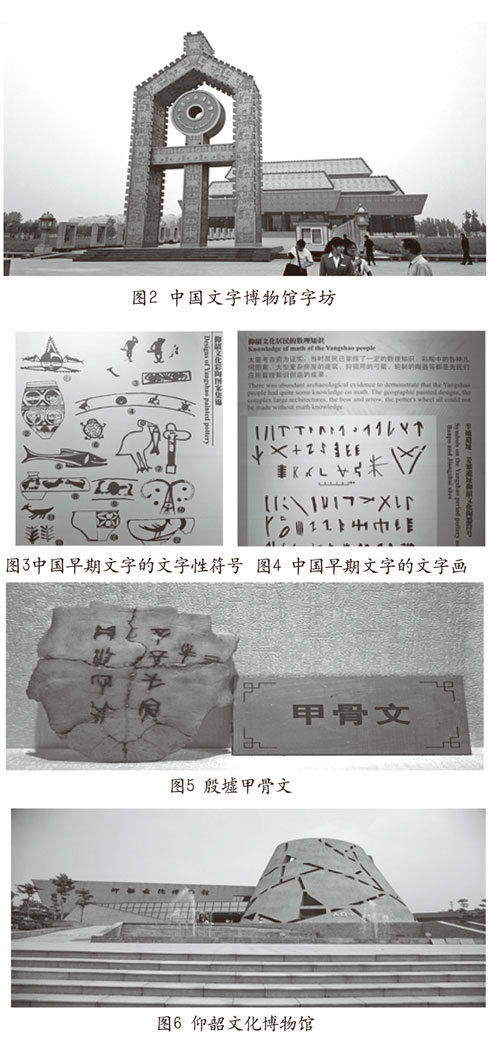 图2 中国文字博物馆字坊
仰韶文化彩陶图案集锦
Designs of Yangshao painted pottery
仰韶文化居民的数理知识
Knowledge of math of the Yangshao people
大量考古资料证实，当时居民已掌握了一定的数理知识，彩陶中的各种几
何图案、大型复杂房屋的建筑、狩猎用的弓箭、轮制的陶器等都是先民们
应用数理知识创造的成果。
There was abundant archaeological evidence to demonstrate that the Yangshao
people had quite some knowledge on math. The geographic painted designs, the
complex large architectures, the bow and arrow, the potter's wheel all could not
be made without math knowledge.
半坡遗址、姜寨遗址仰韶文化陶器符号
Symbols on the Yangshao period pottery
Banpo and Jiangzhai sites
图3中国早期文字的文字性符号
图4 中国早期文字的文字画
甲骨文
图5 殷墟甲骨文
仰韶文化博物馆
图6 仰韶文化博物馆